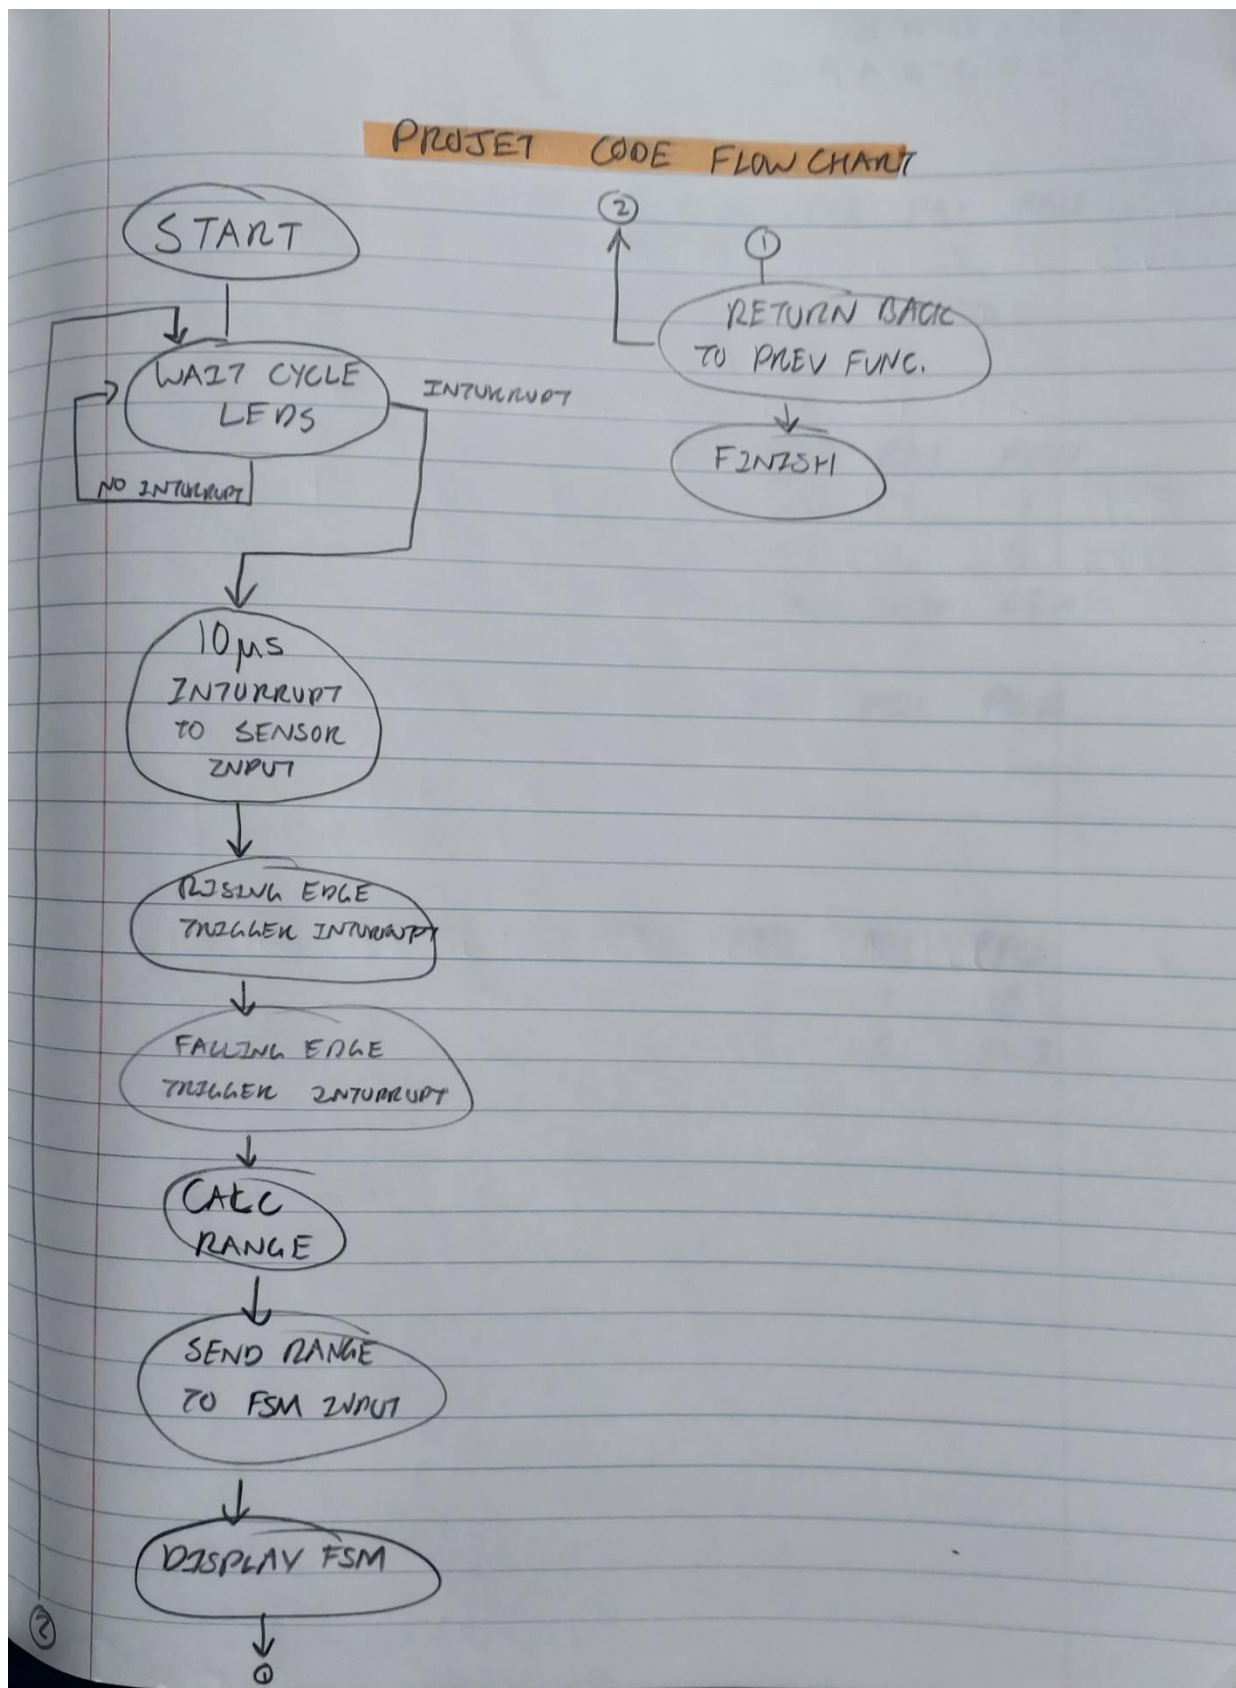 PROJET CODE FLOW CHART
START
WAIT CYCLE
LEDS
INTURRUPT
NO INTURRUPT
10μs
INTURRUPT
TO SENSOR
INPUT
RISING EDGE
TRIGGER INTURRUPT
FALLING EDGE
TRIGGER INTURRUPT
CALC
RANGE
SEND RANGE
TO FSM INPUT
DISPLAY FSM
1
2
2
1
RETURN BACK
TO PREV FUNC.
FINISH